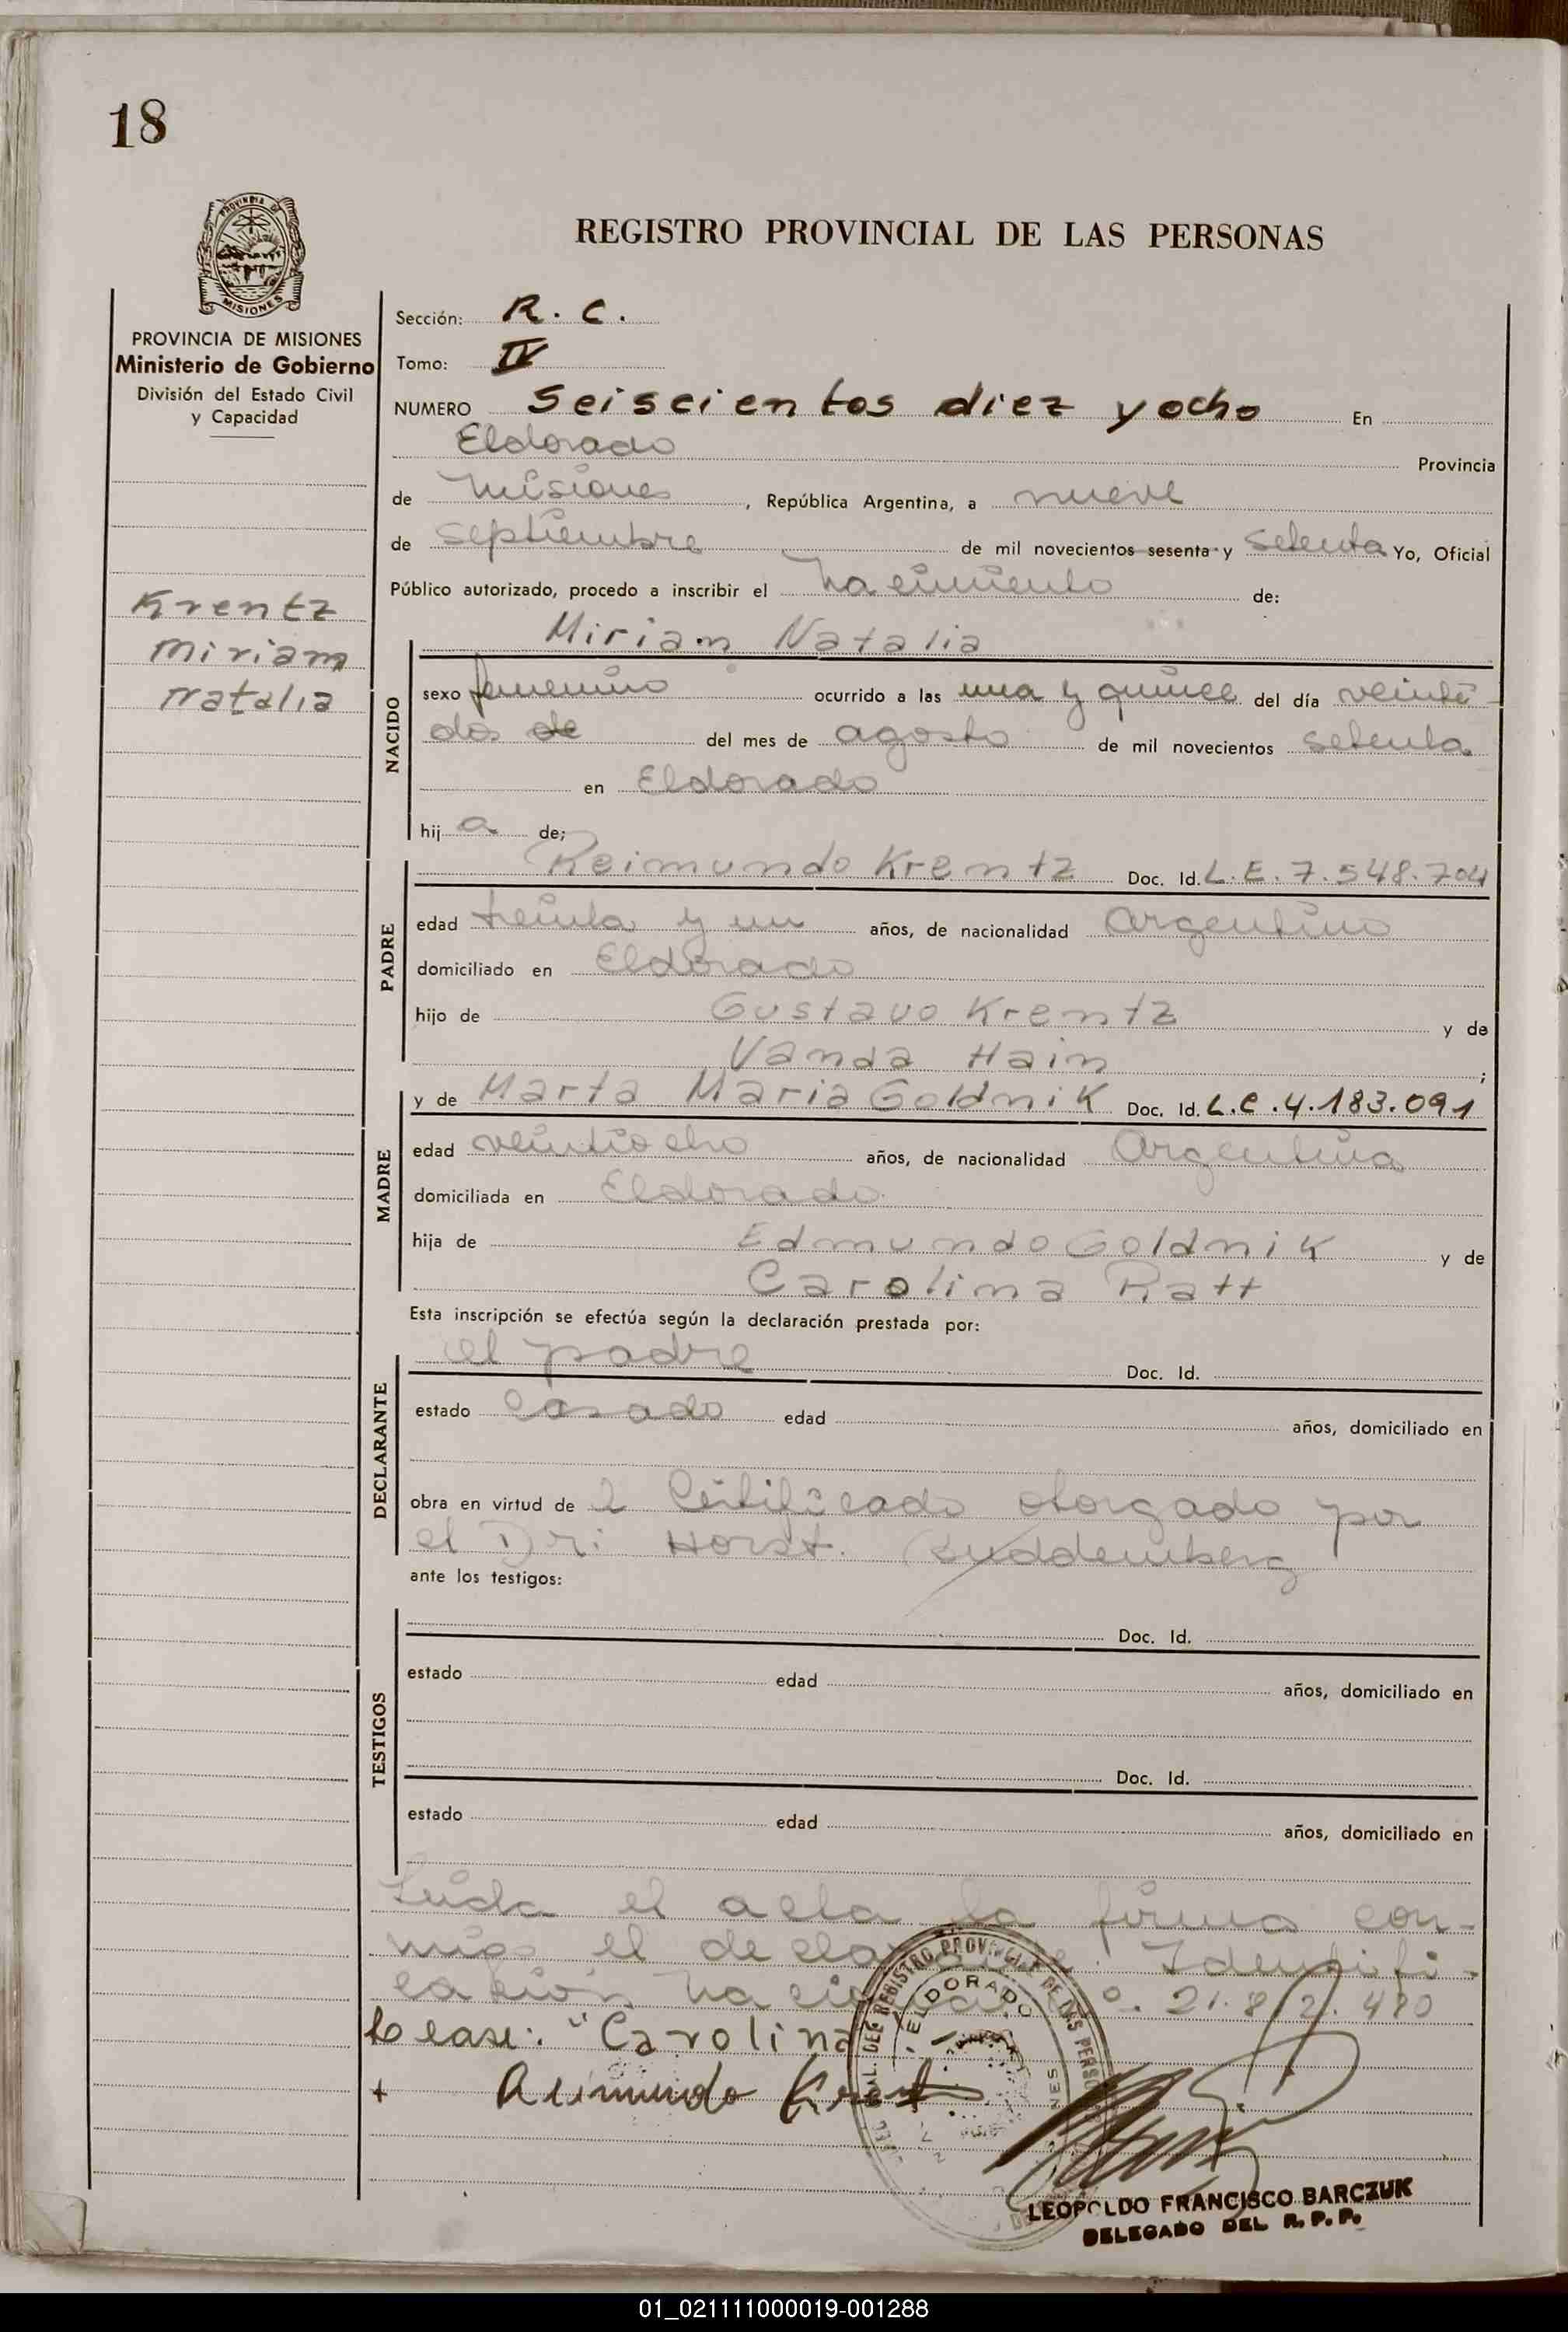 18
PROVINCIA DE
MISIONES
REGISTRO PROVINCIAL DE LAS PERSONAS
PROVINCIA DE MISIONES
Ministerio de Gobierno
División del Estado Civil
y Capacidad
Krentz
Miriam
Natalia
Sección: R. C.
Tomo: IV
NUMERO Seiscientos diez y ocho En
Eldorado Provincia
de Misiones, República Argentina, a nueve
de septiembre de mil novecientos sesenta y setenta Yo, Oficial
Público autorizado, procedo a inscribir el nacimiento de:
NACIDO
Miriam Natalia
sexo femenino ocurrido a las una y quince del día veinti
dos de del mes de agosto de mil novecientos setenta
en Eldorado
hij a de;
PADRE
Reimundo Krentz Doc. Id. L.E. 7.548.704
edad treinta y un años, de nacionalidad Argentino
domiciliado en Eldorado
hijo de Gustavo Krentz y de
Vanda Hain ;
MADRE
y de Marta Maria Goldnik Doc. Id. L.C. 4.183.091
edad veintiocho años, de nacionalidad Argentina
domiciliada en Eldorado
hija de Edmundo Goldnik y de
Carolina Ratt
Esta inscripción se efectúa según la declaración prestada por:
DECLARANTE
el padre Doc. Id.
estado Casado edad años, domiciliado en
obra en virtud de Certificado otorgado por
el Dr: Horst.
ante los testigos:
TESTIGOS
Doc. Id.
estado edad años, domiciliado en
Doc. Id.
estado edad años, domiciliado en
Leida el acta la firma con-
migo el declarante. Identifi-
cación nacional 21.812.480
lease: "Carolina
+ Reimundo Krentz
REGISTRO PROVINCIAL DE LAS PERSONAS
ELDORADO
LEOPOLDO FRANCISCO BARCZUK
DELEGADO DEL R. P. P.
01_021111000019-001288